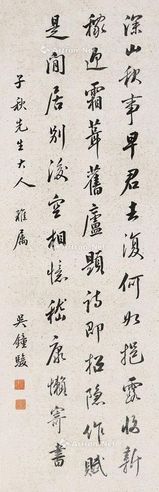 深山秋事早君去復何如挹露收新
稼迎霜葺舊廬題詩即招隱作賦
是閒居别後空相憶嵇康懶寄書
子秋先生大人 雅屬
吳鍾駿